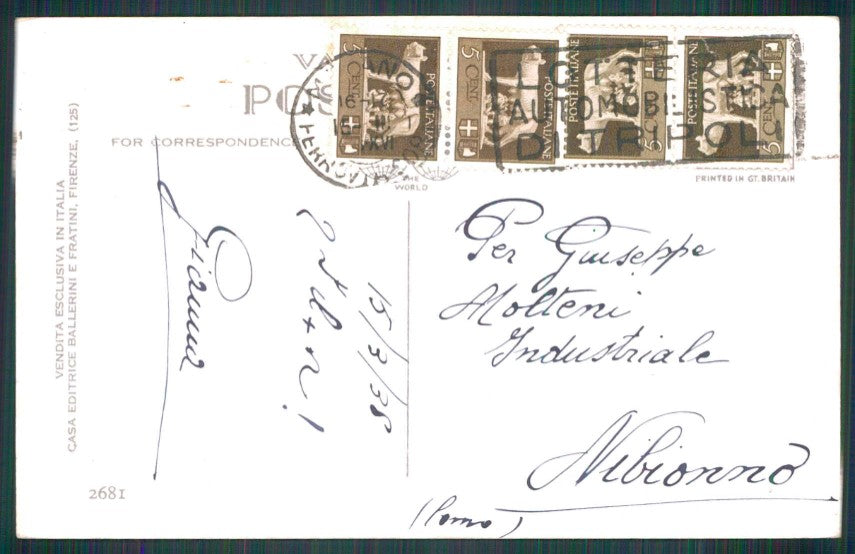 VENDITA ESCLUSIVA IN ITALIA
CASA EDITRICE BALLERINI E FRATINI, FIRENZE, (125)
2681
FOR CORRESPONDENCE
THE
WORLD
PRINTED IN GT. BRITAIN
5 CENT POSTE ITALIANE
5 CENT POSTE ITALIANE
POSTE ITALIANE 5
POSTE ITALIANE 5 CENT
LOTTERIA
AUTOMOBILISTICA
DI TRIPOLI
FERROVIA
15/3/38
Gianna
Per Giuseppe
Molteni
Industriale
Nibionno
(Como)